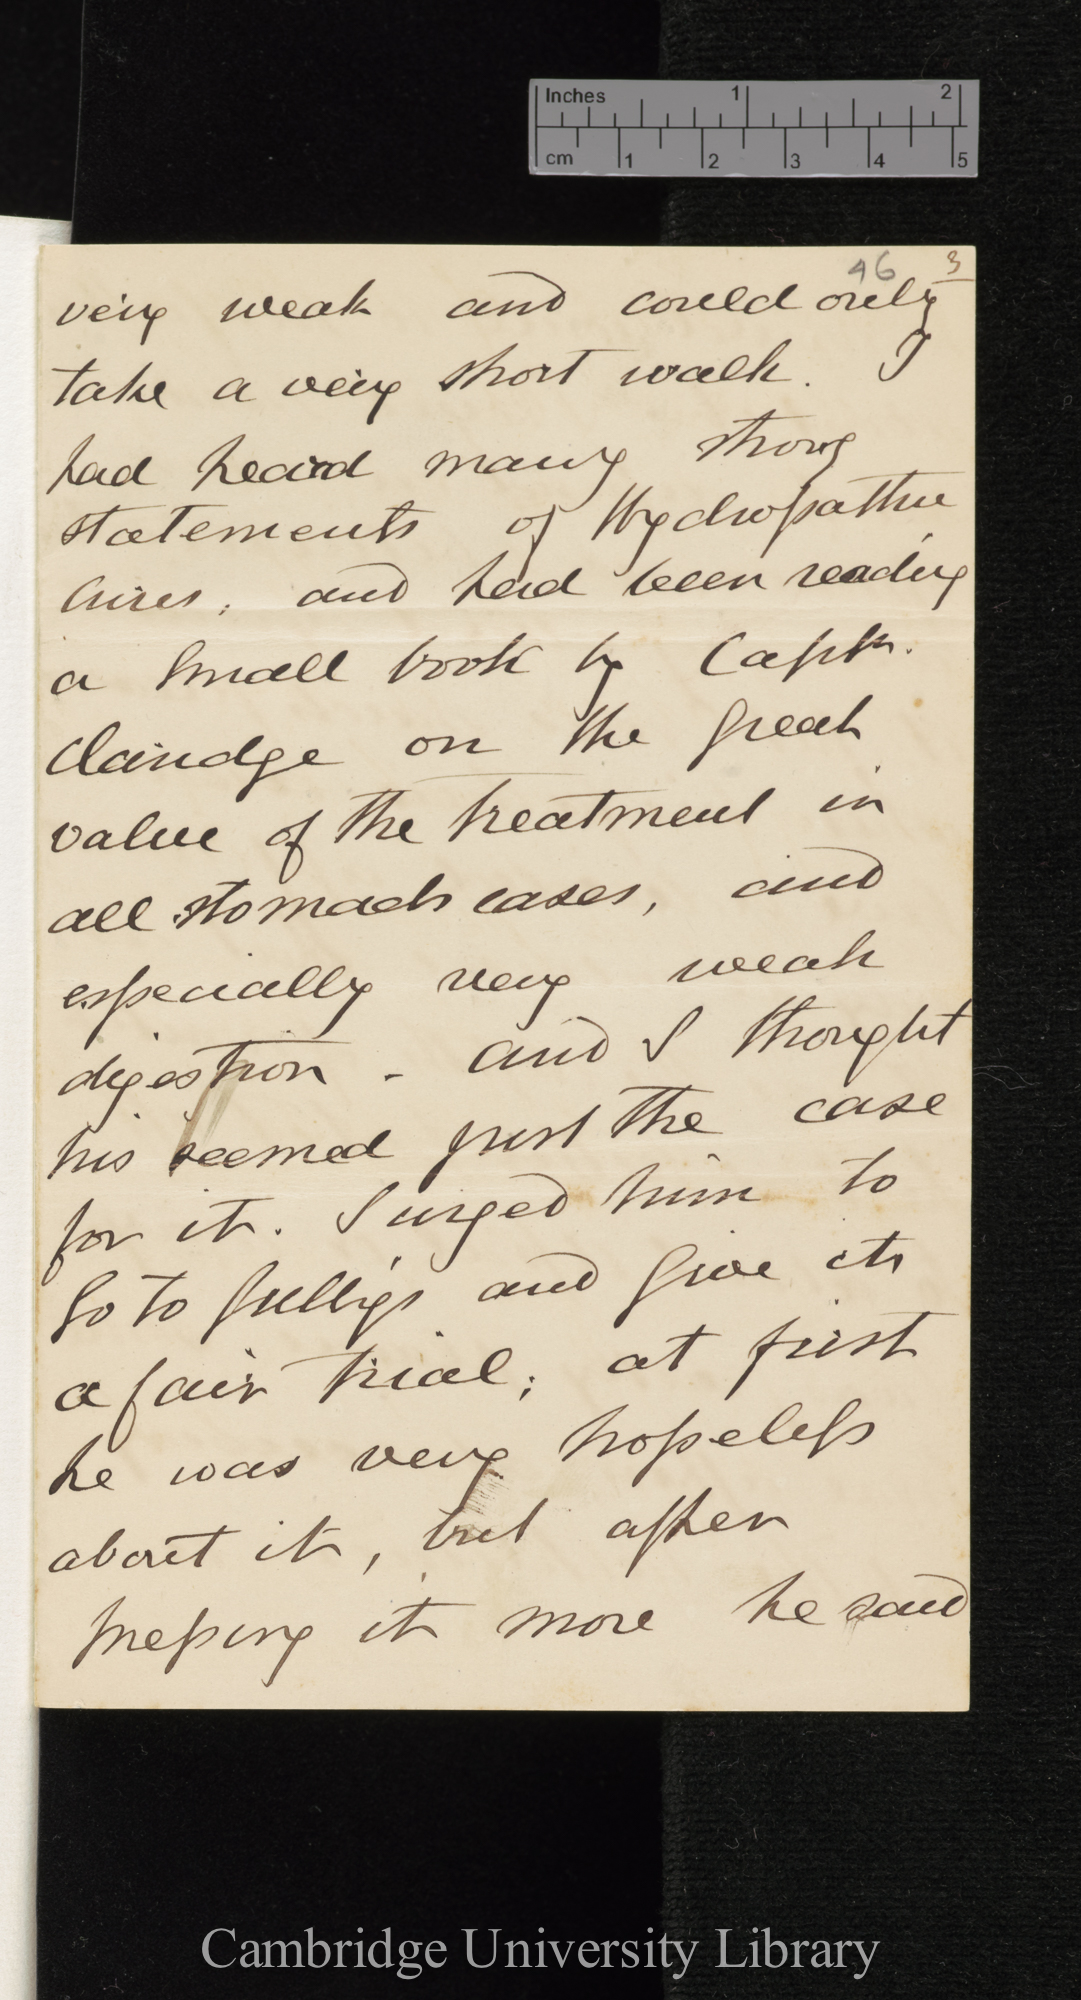 Inches 1 2
cm 1 2 3 4 5
46 3
very weak and could only
take a very short walk. I
had heard many strong
statements of Hydropathic
Cures, and had been reading
a small book by Captn.
Claridge on the great
value of the treatment in
all stomach cases, and
especially very weak
digestion - and I thought
his seemed just the case
for it. I urged him to
go to Gully's and give it
a fair trial; at first
he was very hopeless
about it, but after
pressing it more he said
Cambridge University Library